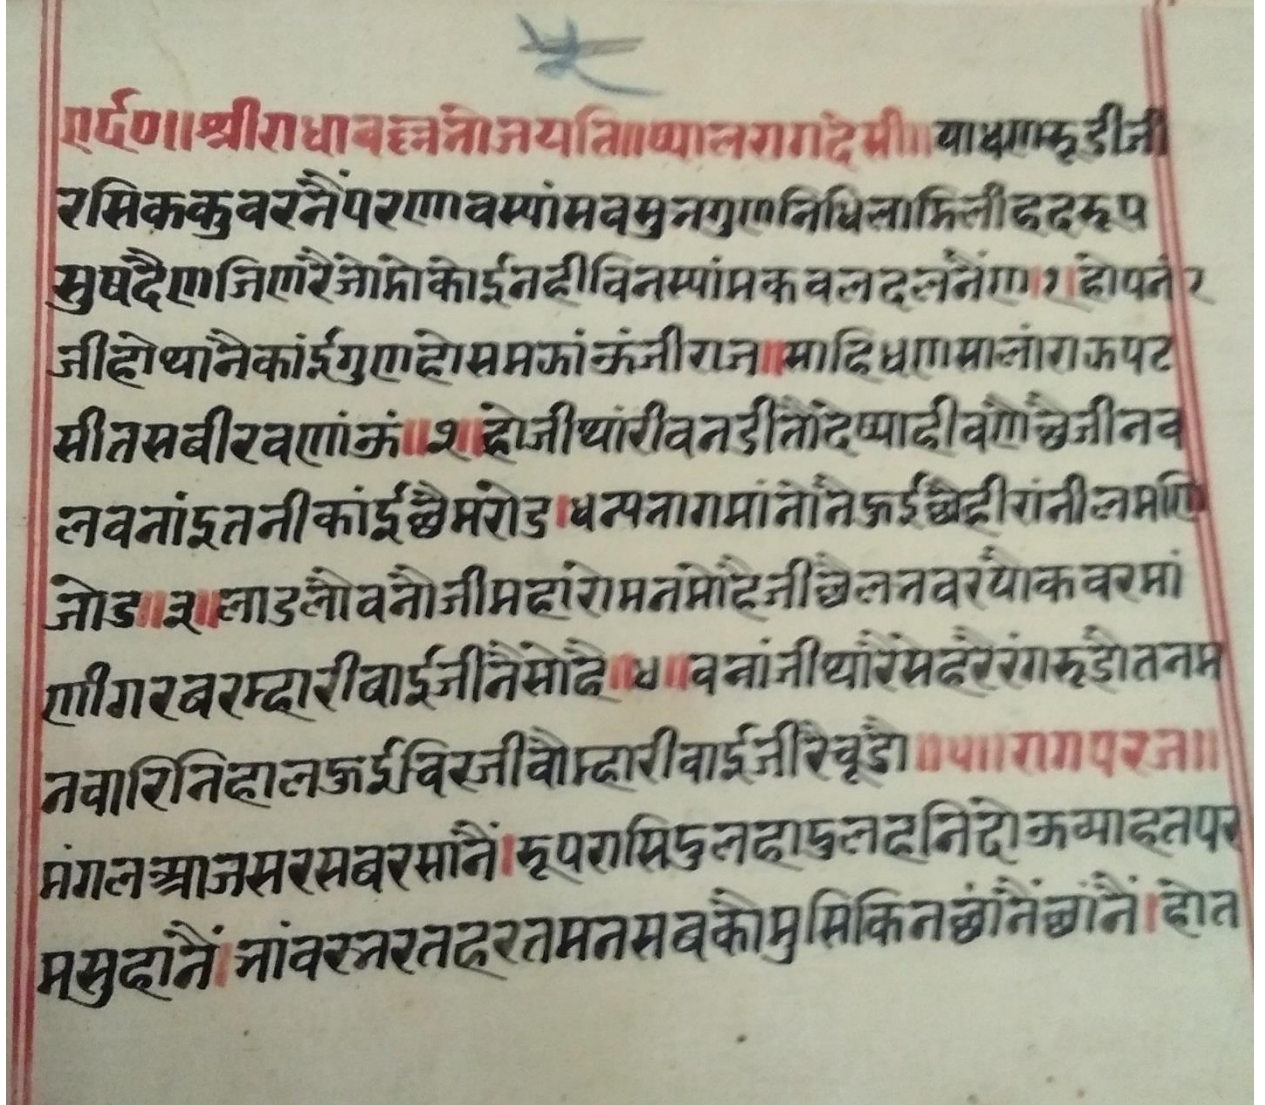 ॥श्रीराधावल्लभोजयति॥ष्यालरागदेसी॥
रसिककुवरनैंपरणवस्यांसबसुनगुणनिधिलाडिलीहदरूप
सुषदैंणजिणरैजोडोकोईनहीविनस्यांमकवलदलनैंण।१।होपनर
जीहोथानैकांईगुणहो राज॥ रूपट
॥२॥होजीथांरीवनडीतौदेष्याहीवणैछैजीनव
लवनांइतनीकांईछैमरोड।धन्यनागमांनोनैऊईछैहीरांनीलमणि
जोड॥३॥लाडलौवनौजीमहांरोमनमोहैजीछैलनवरयौकवरमां
णीगरबरम्हारीबाईजीनैसोहै॥४॥वनांजीथांरैसेहरैरंगरूडौतनम
नवारिनिहालऊईचिरजीवौम्हारीबाईजीरैचूडौ॥५॥रागपरज॥
मंगलआजसरसबरसांनैं।रूपरासिदुलहादुलहनिदोऊव्याहतपर
मसुहांनैं। मनसबकौमुसिकिनछांनैंछांनैं।होत